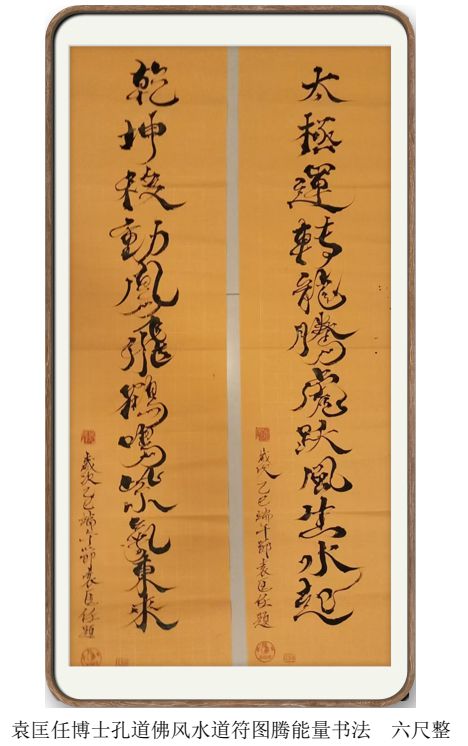 太極運轉龍騰虎跃風生水起
歲次乙巳端午節袁匡任題
乾坤動凰飛鶴鳴紫氣東來
歲次乙巳端午節袁匡任題
袁匡任博士孔道佛风水道符图腾能量书法　六尺整